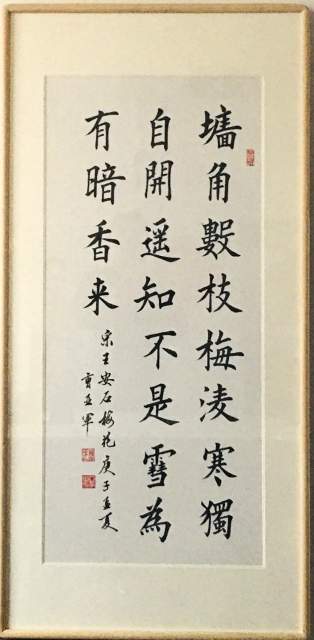 墻角數枝梅淩寒獨
自開遥知不是雪為
有暗香来
宋王安石梅花庚子孟夏
曹亚軍